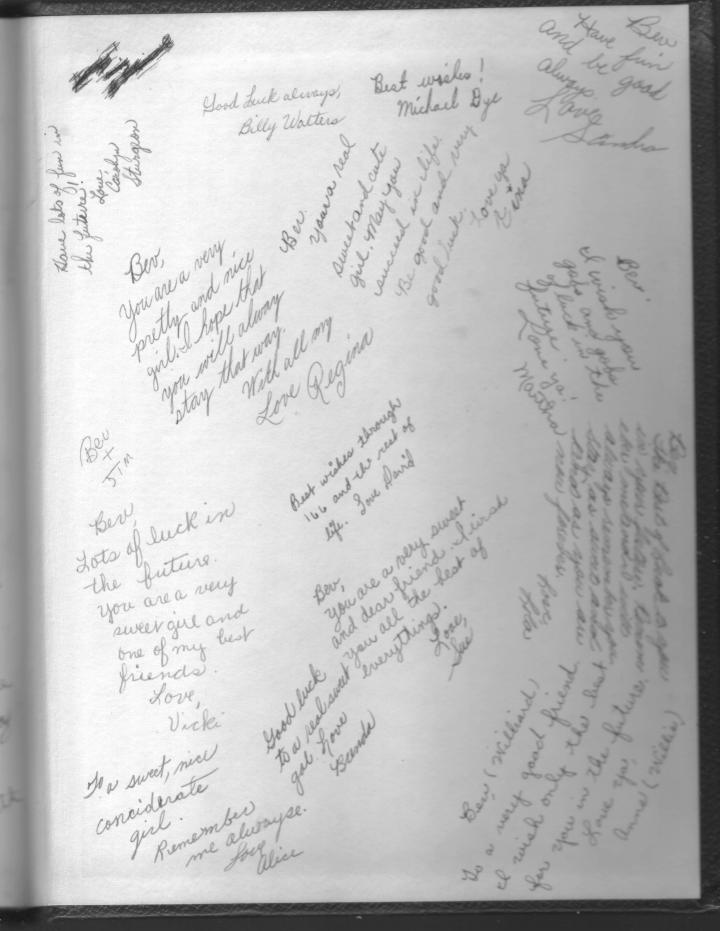 Good Luck always,
Billy Walters
Best wishes!
Michael Dye
Bev
Have fun
and be good
always.
Love
Have lots of fun in
the future!
Love,
Carolyn
Sturgeon
Bev,
You are a very
pretty and nice
girl. I hope that
you will alway
stay that way.
With all my
Love Regina
Bev.
Your a real
sweet and cute
girl. May you
succeed in life.
Be good and very
good luck.
Love ya
Tina
Bev.
I wish you
gobs and gobs
of luck in the
future.
Love ya!
Martha
Bev
+
Jim
Best wishes through
'66 and the rest of
life. Love David
Bev,
Lots of luck in
the future.
You are a very
sweet girl and
one of my best
friends.
Love,
Vicki
Bev,
You are a very sweet
and dear friend. I wish
you all the best of
everythings.
Love,
Sue
Good luck
to a real sweet
gal. Love
Brenda
Bev,
The best of luck to you
in
always
Love,
To a sweet, nice
conciderate
girl.
Remember
me alwayse.
Love
Alice
Bev (Williard)
To a very good friend.
I wish only the best
for you in the future.
Love ya,
Anne (Willie)